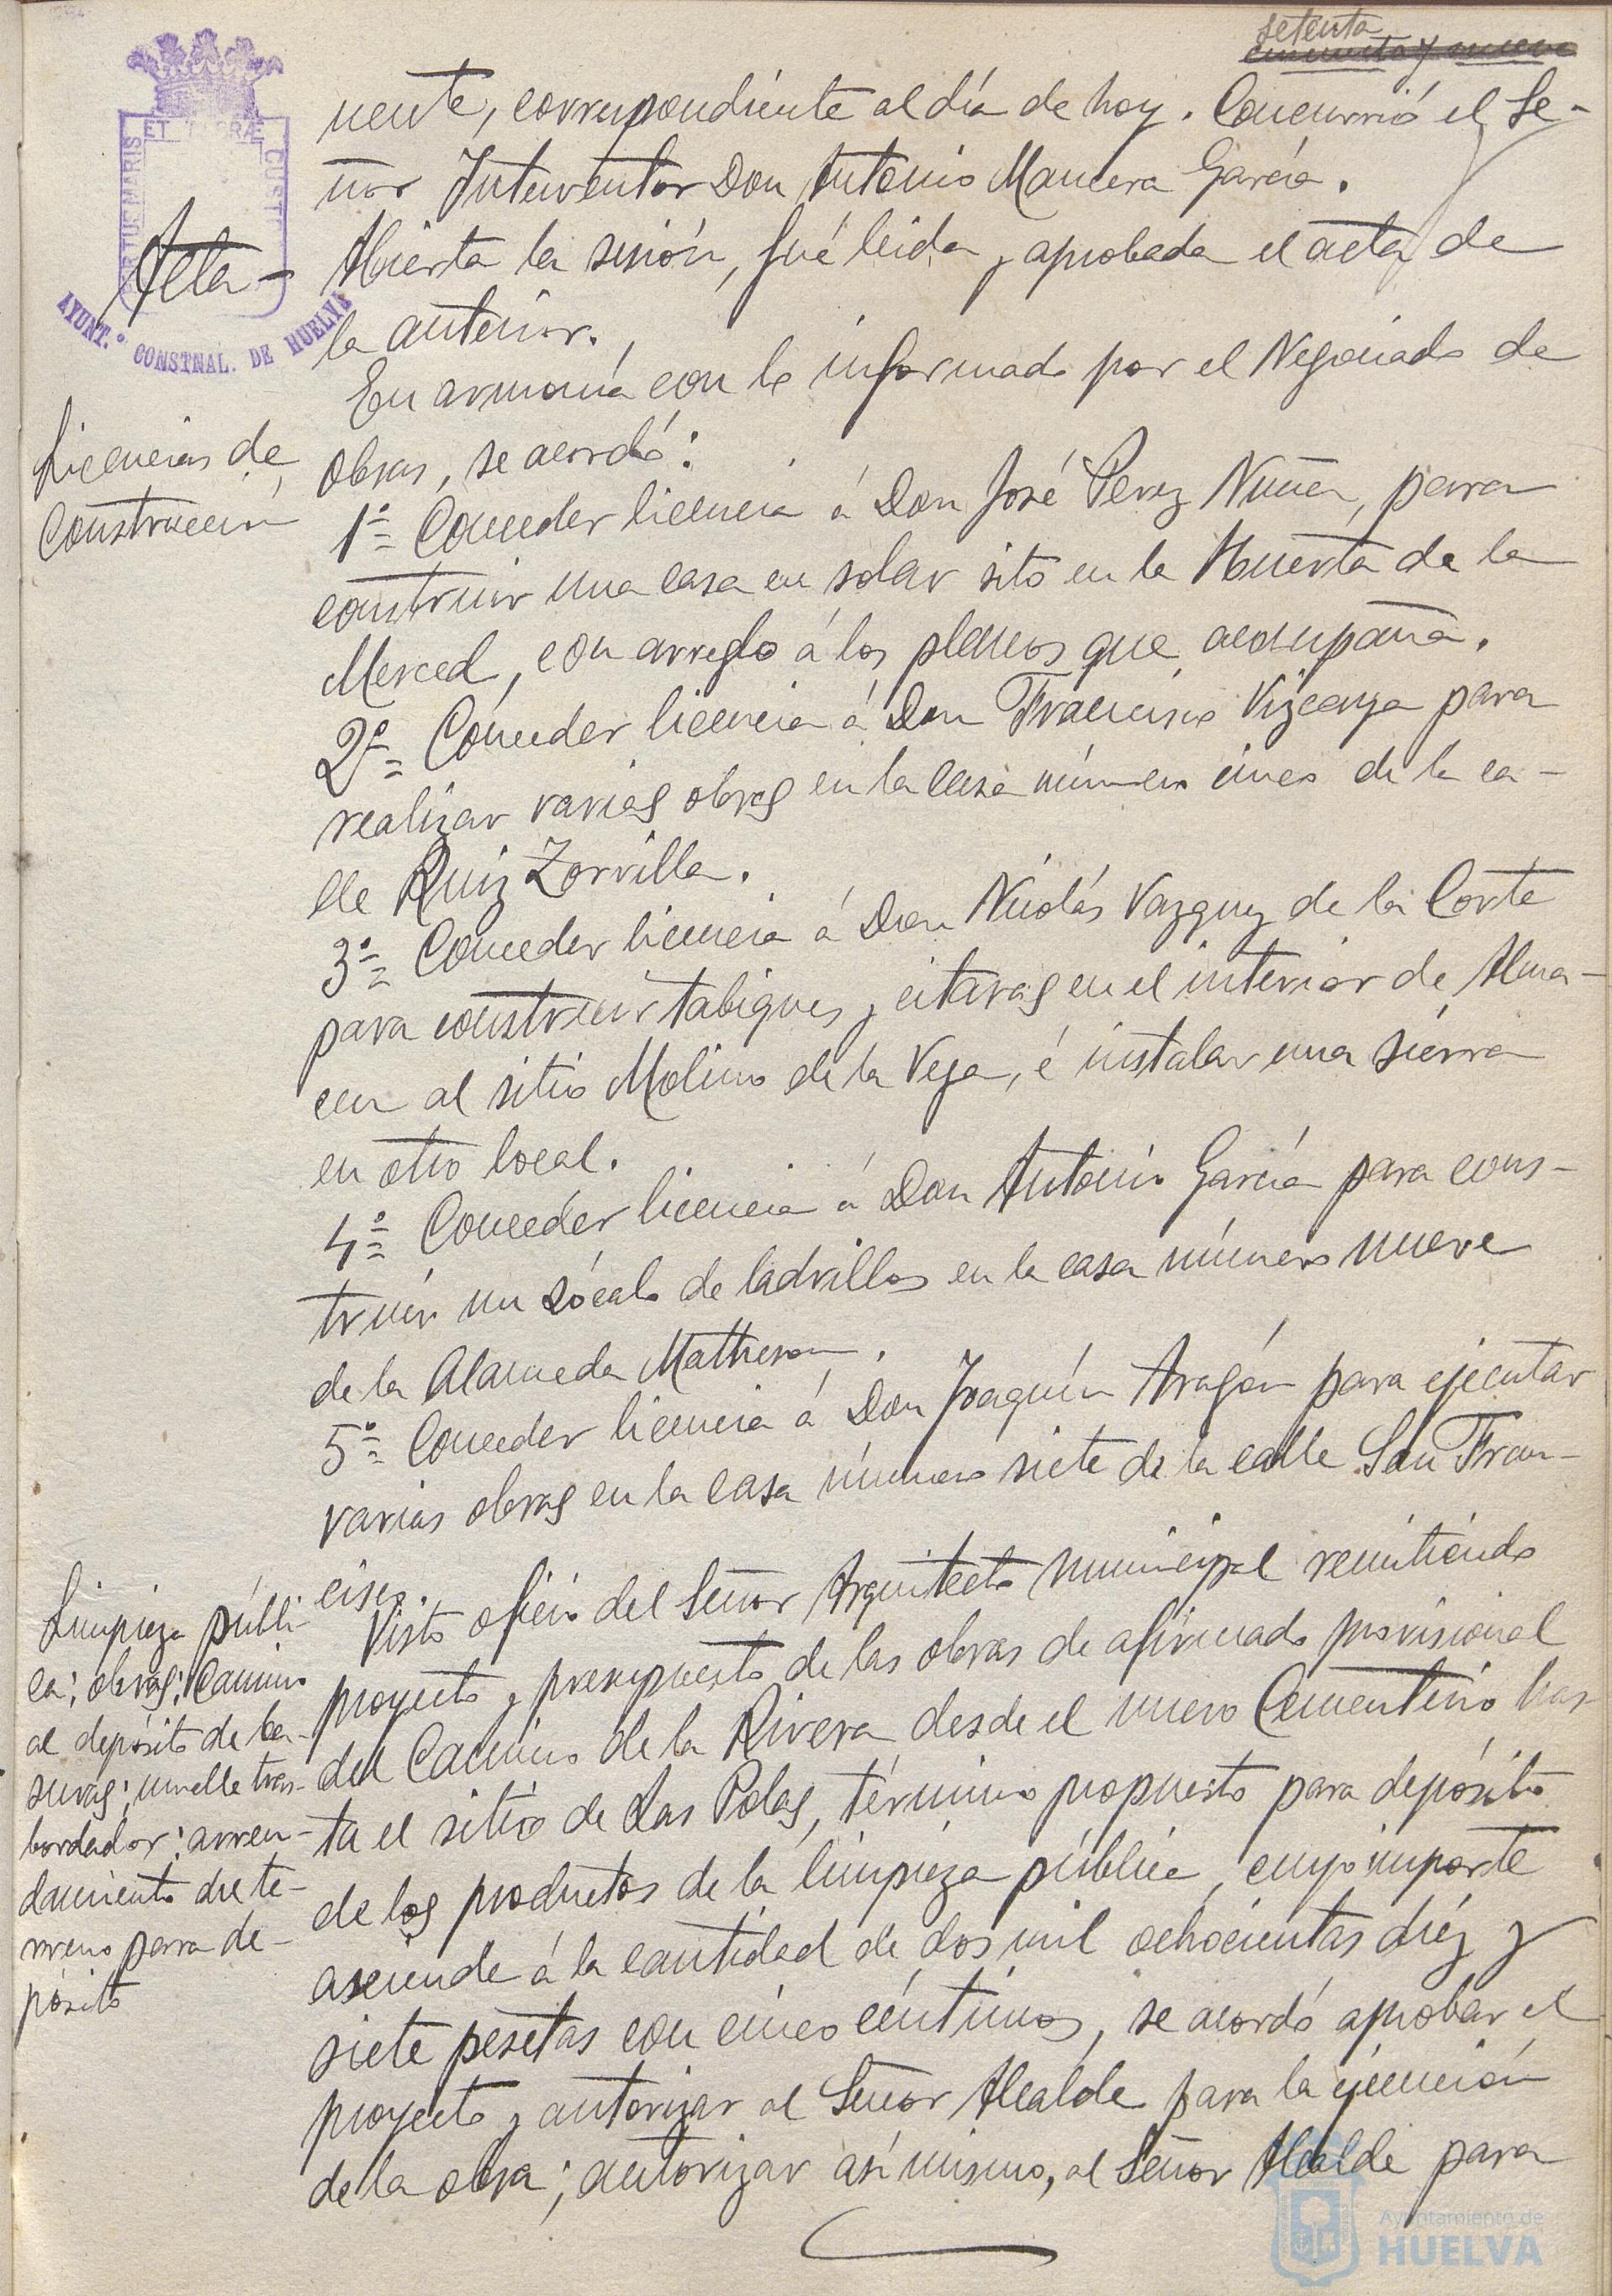 setenta
cincuenta y nueve
nente, correspondiente al día de hoy. Concurrió el Se-
ñor Interventor Don Antonio Mancera García.
Acta-
Abierta la sesión, fué leida y aprobada el acta de
la anterior.
PORTUS MARIS ET TERRÆ CUSTODIA
AYUNT.º CONSTNAL. DE HUELVA
En armonía con lo informado por el Negociado de
obras, se acordó:
Licencias de
Construcción
1º= Conceder licencia á Don José Perez Nuñez, para
construir una casa en solar sito en la Huerta de la
Merced, con arreglo á los planos que acompaña.
2º= Conceder licencia á Don Francisco Vizcaya para
realizar varias obras en la casa número cinco de la ca-
lle Ruiz Zorrilla.
3º= Conceder licencia á Don Nicolás Vazquez de la Corte
para construir tabiques y citaras en el interior de Alma-
cen al sitio Molino de la Vega, é instalar una sierra
en otro local.
4º= Conceder licencia á Don Antonio García para cons-
truir un zócalo de ladrillos en la casa número nueve
de la Alameda Matheson.
5º= Conceder licencia á Don Joaquín Aragón para ejecutar
varias obras en la casa número siete de la calle San Fran-
cisco.
Limpieza públi-
ca; obras; Camino
al depósito de ba-
suras; muelle tras-
bordador; arren-
damiento de te-
rreno para de-
pósito
Visto oficio del Señor Arquitecto municipal remitiendo
proyecto y presupuesto de las obras de afirmado provisional
del Camino de la Rivera desde el nuevo Cementerio has-
ta el sitio de Las Polas, término propuesto para depósito
de los productos de la limpieza pública, cuyo importe
asciende á la cantidad de dos mil ochocientas diéz y
siete pesetas con cinco céntimos, se acordó aprobar el
proyecto y autorizar al Señor Alcalde para la ejecución
de la obra; autorizar asímismo, al Señor Alcalde para
Ayuntamiento de
HUELVA